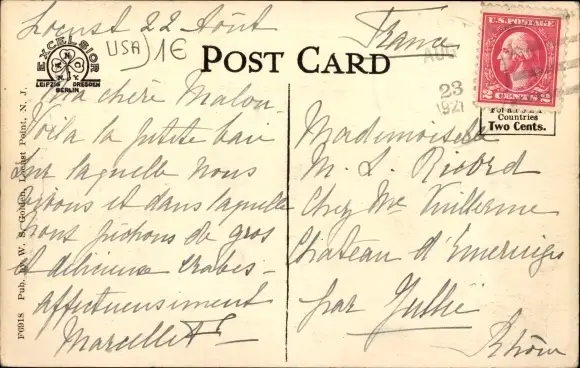 Locust 22 Août
USA 1€
EXCELSIOR
N.Y.
LEIPZIG DRESDEN
BERLIN
POST CARD
France
AUG
23
1921
U.S. POSTAGE
2 CENTS 2
Countries
Two Cents.
F6918 Pub. by W. S. Golden, Locust Point, N. J.
Ma chère Malou
Voila la petite baie
sur laquelle nous
vivons et dans laquelle
nous pêchons de gros
et délicieux crabes -
affectueusement
Marcelle
Mademoiselle
M. L. Ricord
Chez Me Vuillerme
Chateau d'Emeringes
par Jullié
Rhône